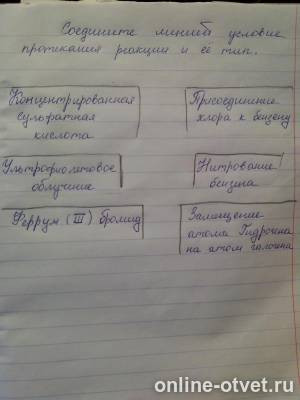 Соедините линией условие
протикания реакции и её тип.
Концентрированная
сульфатная
кислота
Присоединение
хлора к бензену
Ультрафиолетовое
облучение
Нитрование
бензина
Феррум (III) бромид
Замещение
атома Гидрогена
на атом галогена
online-otvet.ru